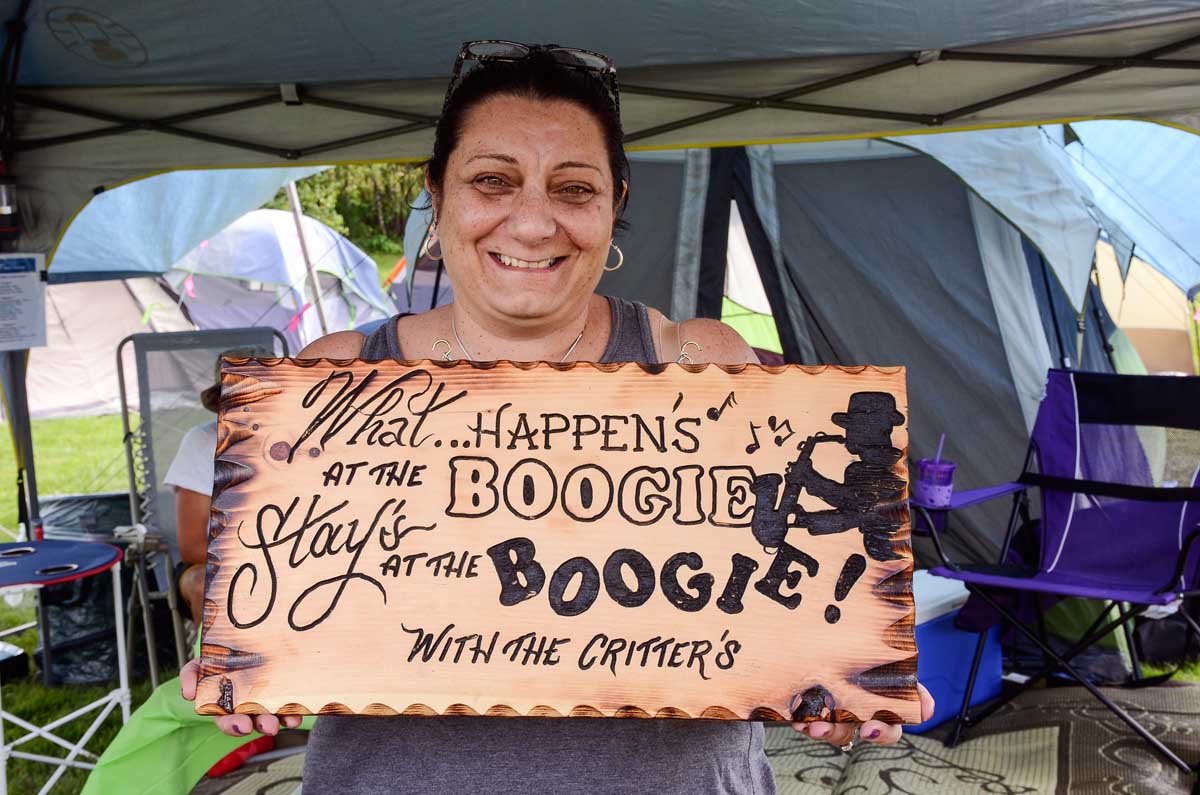 What...HAPPEN'S
AT THE BOOGIE
Stay's AT THE BOOGIE!
WITH THE CRITTER'S